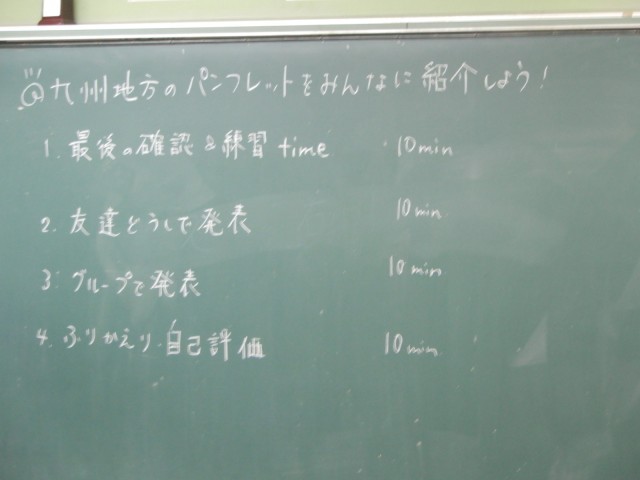 @九州地方のパンフレットをみんなに紹介しよう!
1. 最後の確認&練習 time 10min
2. 友達どうしで発表 10min.
3. グループで発表 10min
4. ふりかえり・自己評価 10min.